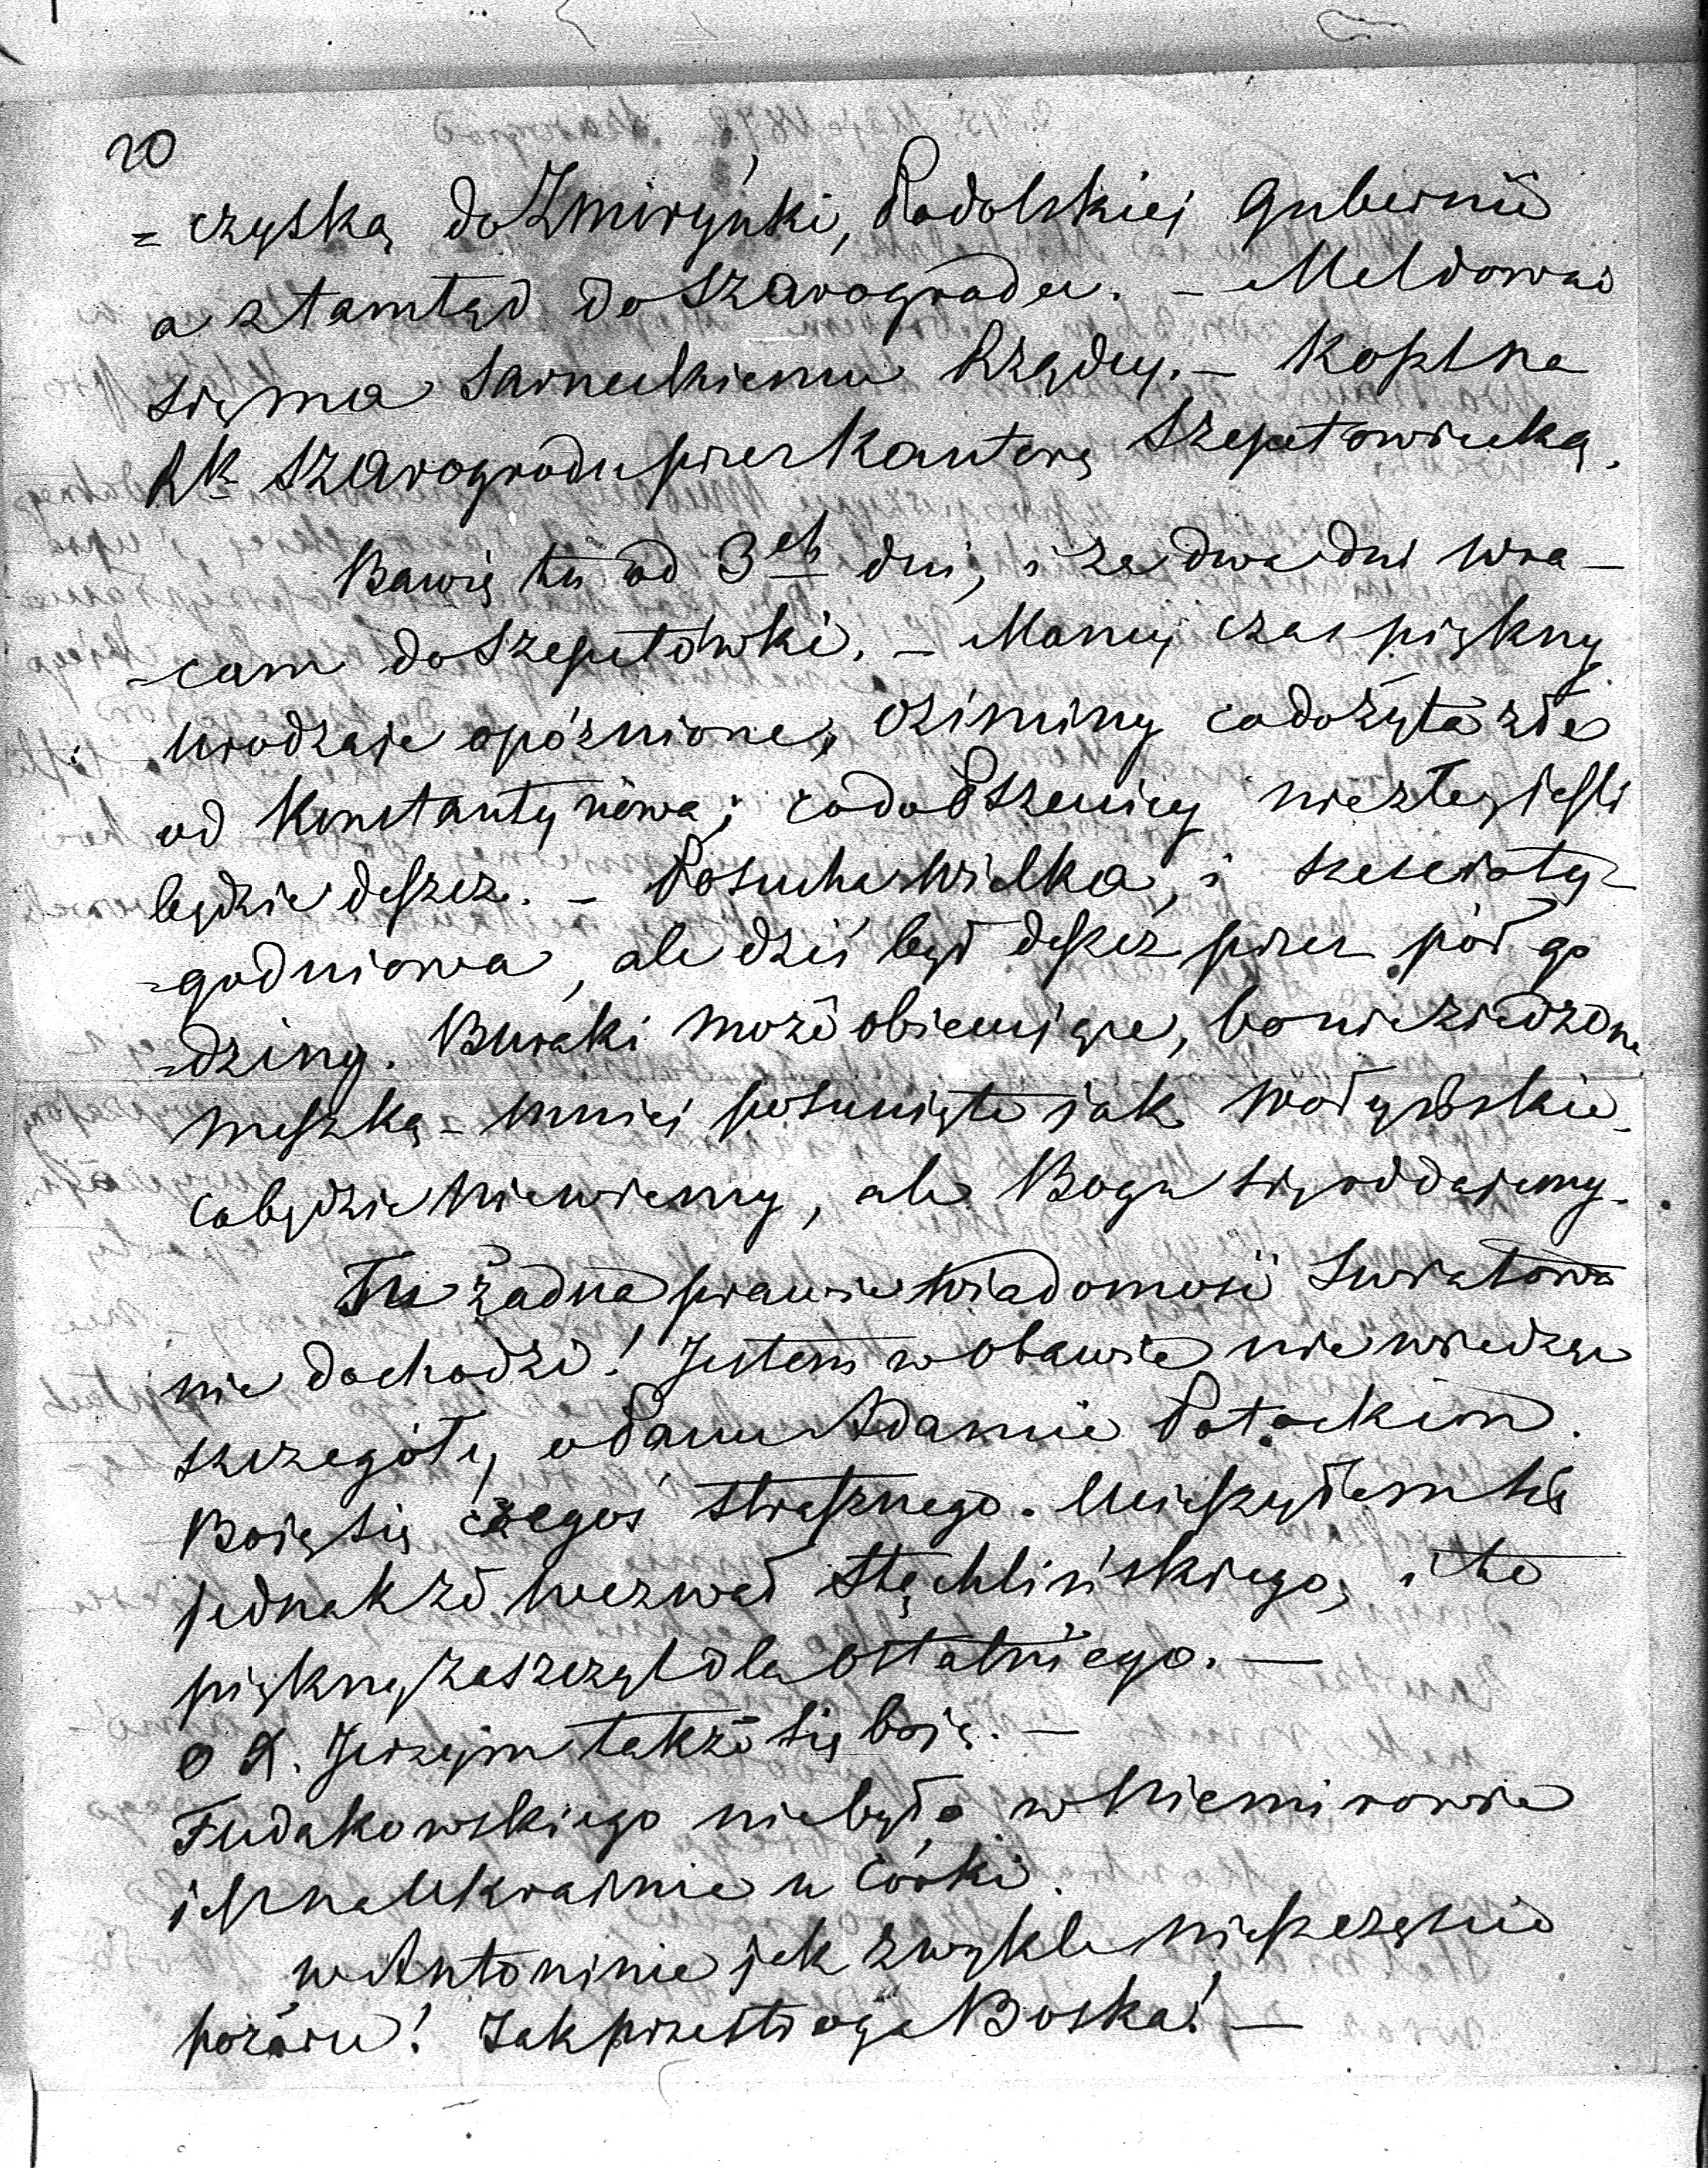 20
= czyską do Żmirynki, Podolskiej Gubernii
a ztamtąd do Szarogrodu. - Meldować
się ma Sarneckiemu Rządcy. - Koszt na
Rk Szarogrodu przez Kantorę Szepetowiecką.
Bawię tu od 3ch dni, i za dwa dni wra-
-cam do Szepetówki. - Mamy czas piękny
urodzaje opóźnione, oziminy co do żyta złe
od Konstantynowa; co do Pszenicy niezłe, jeśli
będzie deszcz. - Posucha wielka, i sześcioty-
-godniowa, ale dziś był deszcz przez pół go
-dziny. Buraki może obiecujące, bo nie zjedzone
meszką - mniej posunięte jak Wołyńskie.
co będzie niewiemy, ale Bogu się oddajemy.
Tu żadna prawie wiadomość światowa
nie dochodzi! Jestem w obawie nie wiedząc
szczegóły o Panu Adamie Potockim.
Boję się czegoś strasznego. Ucieszyłem się
jednak że wezwał Stęchlińskiego, i to
piękny zaszczyt dla ostatniego. —
o X. Jerzym także się boję. —
Fudakowskiego nie było w Niemirowie
jest na Ukrainie u córki.
w Antoninie jak zwykle nieszczęście
pożaru! Jak przestroga Boska! —